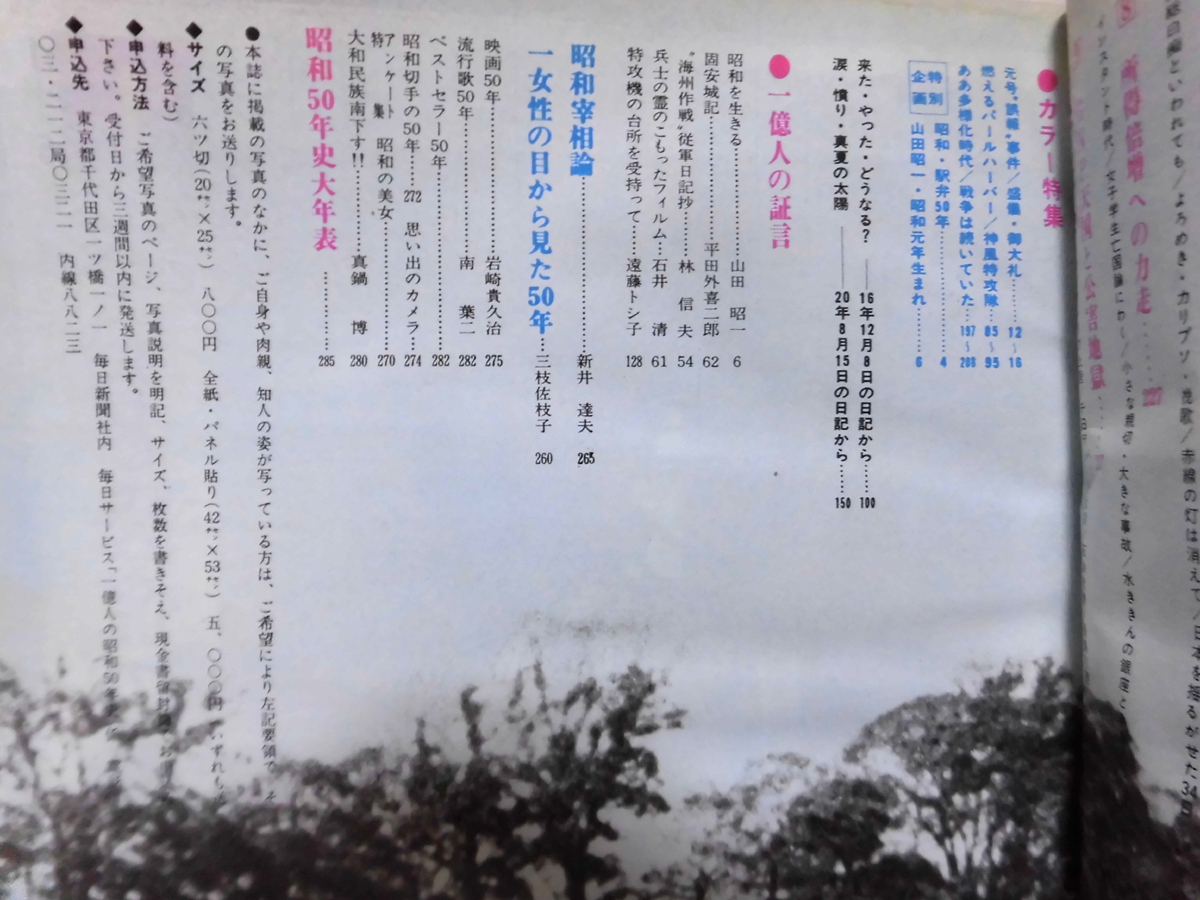 総目編といわれても/よろめき・カリプソ・挽歌/赤線の灯は消えて/日本を
所得倍増への力走……227
インスタント時代/女子学生亡国論にわ〜/小さな親切・大きな事故/水ききんの銀座と
公害地獄
●カラー特集
元号〝誤報〟事件/盛儀・御大礼……12〜16
燃えるパールハーバー/神風特攻隊…85〜95
ああ多様化時代/戦争は続いていた…197〜208
特別企画
昭和・駅弁50年……4
山田昭一・昭和元年生まれ…6
来た・やった・どうなる? ――16年12月8日の日記から……100
涙・憤り・真夏の太陽 ――20年8月15日の日記から……150
●一億人の証言
昭和を生きる……山田 昭一 6
固安城記……平田外喜二郎 62
〝海州作戦〟従軍日記抄……林 信夫 54
兵士の霊のこもったフィルム…石井 清 61
特攻機の台所を受持って……遠藤トシ子 128
昭和宰相論……新井 達夫 265
一女性の目から見た50年…三枝佐枝子 260
映画50年……岩崎貴久治 275
流行歌50年……南 葉二 282
ベストセラー50年……282
昭和切手の50年……272 思い出のカメラ…274
アンケート特集 昭和の美女……270
大和民族南下す!!……真鍋 博 280
昭和50年史大年表……285
●本誌に掲載の写真のなかに、ご自身や肉親、知人の姿が写っている方は、ご希望により左記要領で、そ
の写真をお送りします。
◆サイズ 六ツ切(20㌢×25㌢) 八〇〇円 全紙・パネル貼り(42㌢×53㌢) 五、〇〇〇円(いずれも送
料を含む)
◆申込方法 ご希望写真のページ、写真説明を明記、サイズ、枚数を書きそえ、現金書留封
下さい。受付日から三週間以内に発送します。
◆申込先 東京都千代田区一ツ橋一ノ一 毎日新聞社内 毎日サービス「一億人の昭和50年
〇三・二一二局〇三二一 内線八八二三